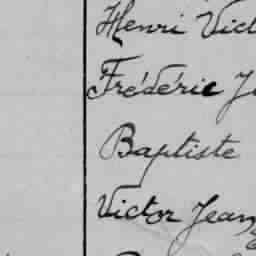 Henri Vict
Frédéric J
Baptiste
Victor Jean